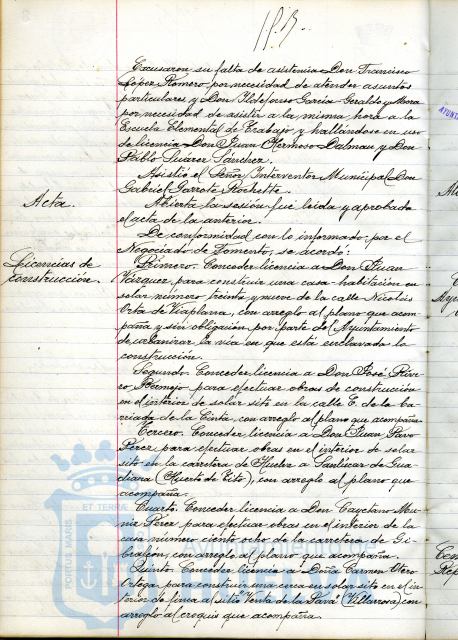 Excusaron su falta de asistencia Don Francisco
López Romero, por necesidad de atender asuntos
particulares y Don Ildefonso García Geraldo y Mora
por necesidad de asistir a la misma hora a la
Escuela Elemental de Trabajo, y hallándose en uso
de licencia Don Juan Hermoso Dalmau y Don
Pablo Suárez Sánchez.
Asistió el Señor Interventor Municipal Don
Gabriel Garrote Rochette.
Acta.
Abierta la sesión fué leida y aprobada
el acta de la anterior.
De conformidad con lo informado por el
Negociado de Fomento, se acordó:
Licencias de
construcción.
Primero. Conceder licencia a Don Juan
Vázquez, para construir una casa-habitación en
solar número treinta y nueve de la calle Nicolás
Orta de Viaplana, con arreglo al plano que acom-
paña y sin obligación por parte del Ayuntamiento
de urbanizar la vía en que está enclavada la
construcción.
Segundo. Conceder licencia a Don José Rive-
ro Bermejo para efectuar obras de construcción
en el interior de solar sito en la calle E. de la ba-
rriada de la Cinta, con arreglo al plano que acompaña.
Tercero. Conceder licencia a Don Juan Pavo
Pérez, para efectuar obras en el interior de solar
sito en la carretera de Huelva a Sanlúcar de Gua-
diana (Huerto de), con arreglo al plano que
acompaña.
Cuarto. Conceder licencia a Don Cayetano Mu-
ñiz Pérez, para efectuar obras en el interior de la
casa número ciento ocho de la carretera de Gi-
braleón, con arreglo al plano que acompaña.
Quinto. Conceder licencia a Doña Carmen Otero
Ortega, para construir una cerca en solar sito en el in-
terior de línea al sitio "Venta de la Pava" (Villarrosa) con
arreglo al croquis que acompaña.
PORTUS MARIS ET TERRAE